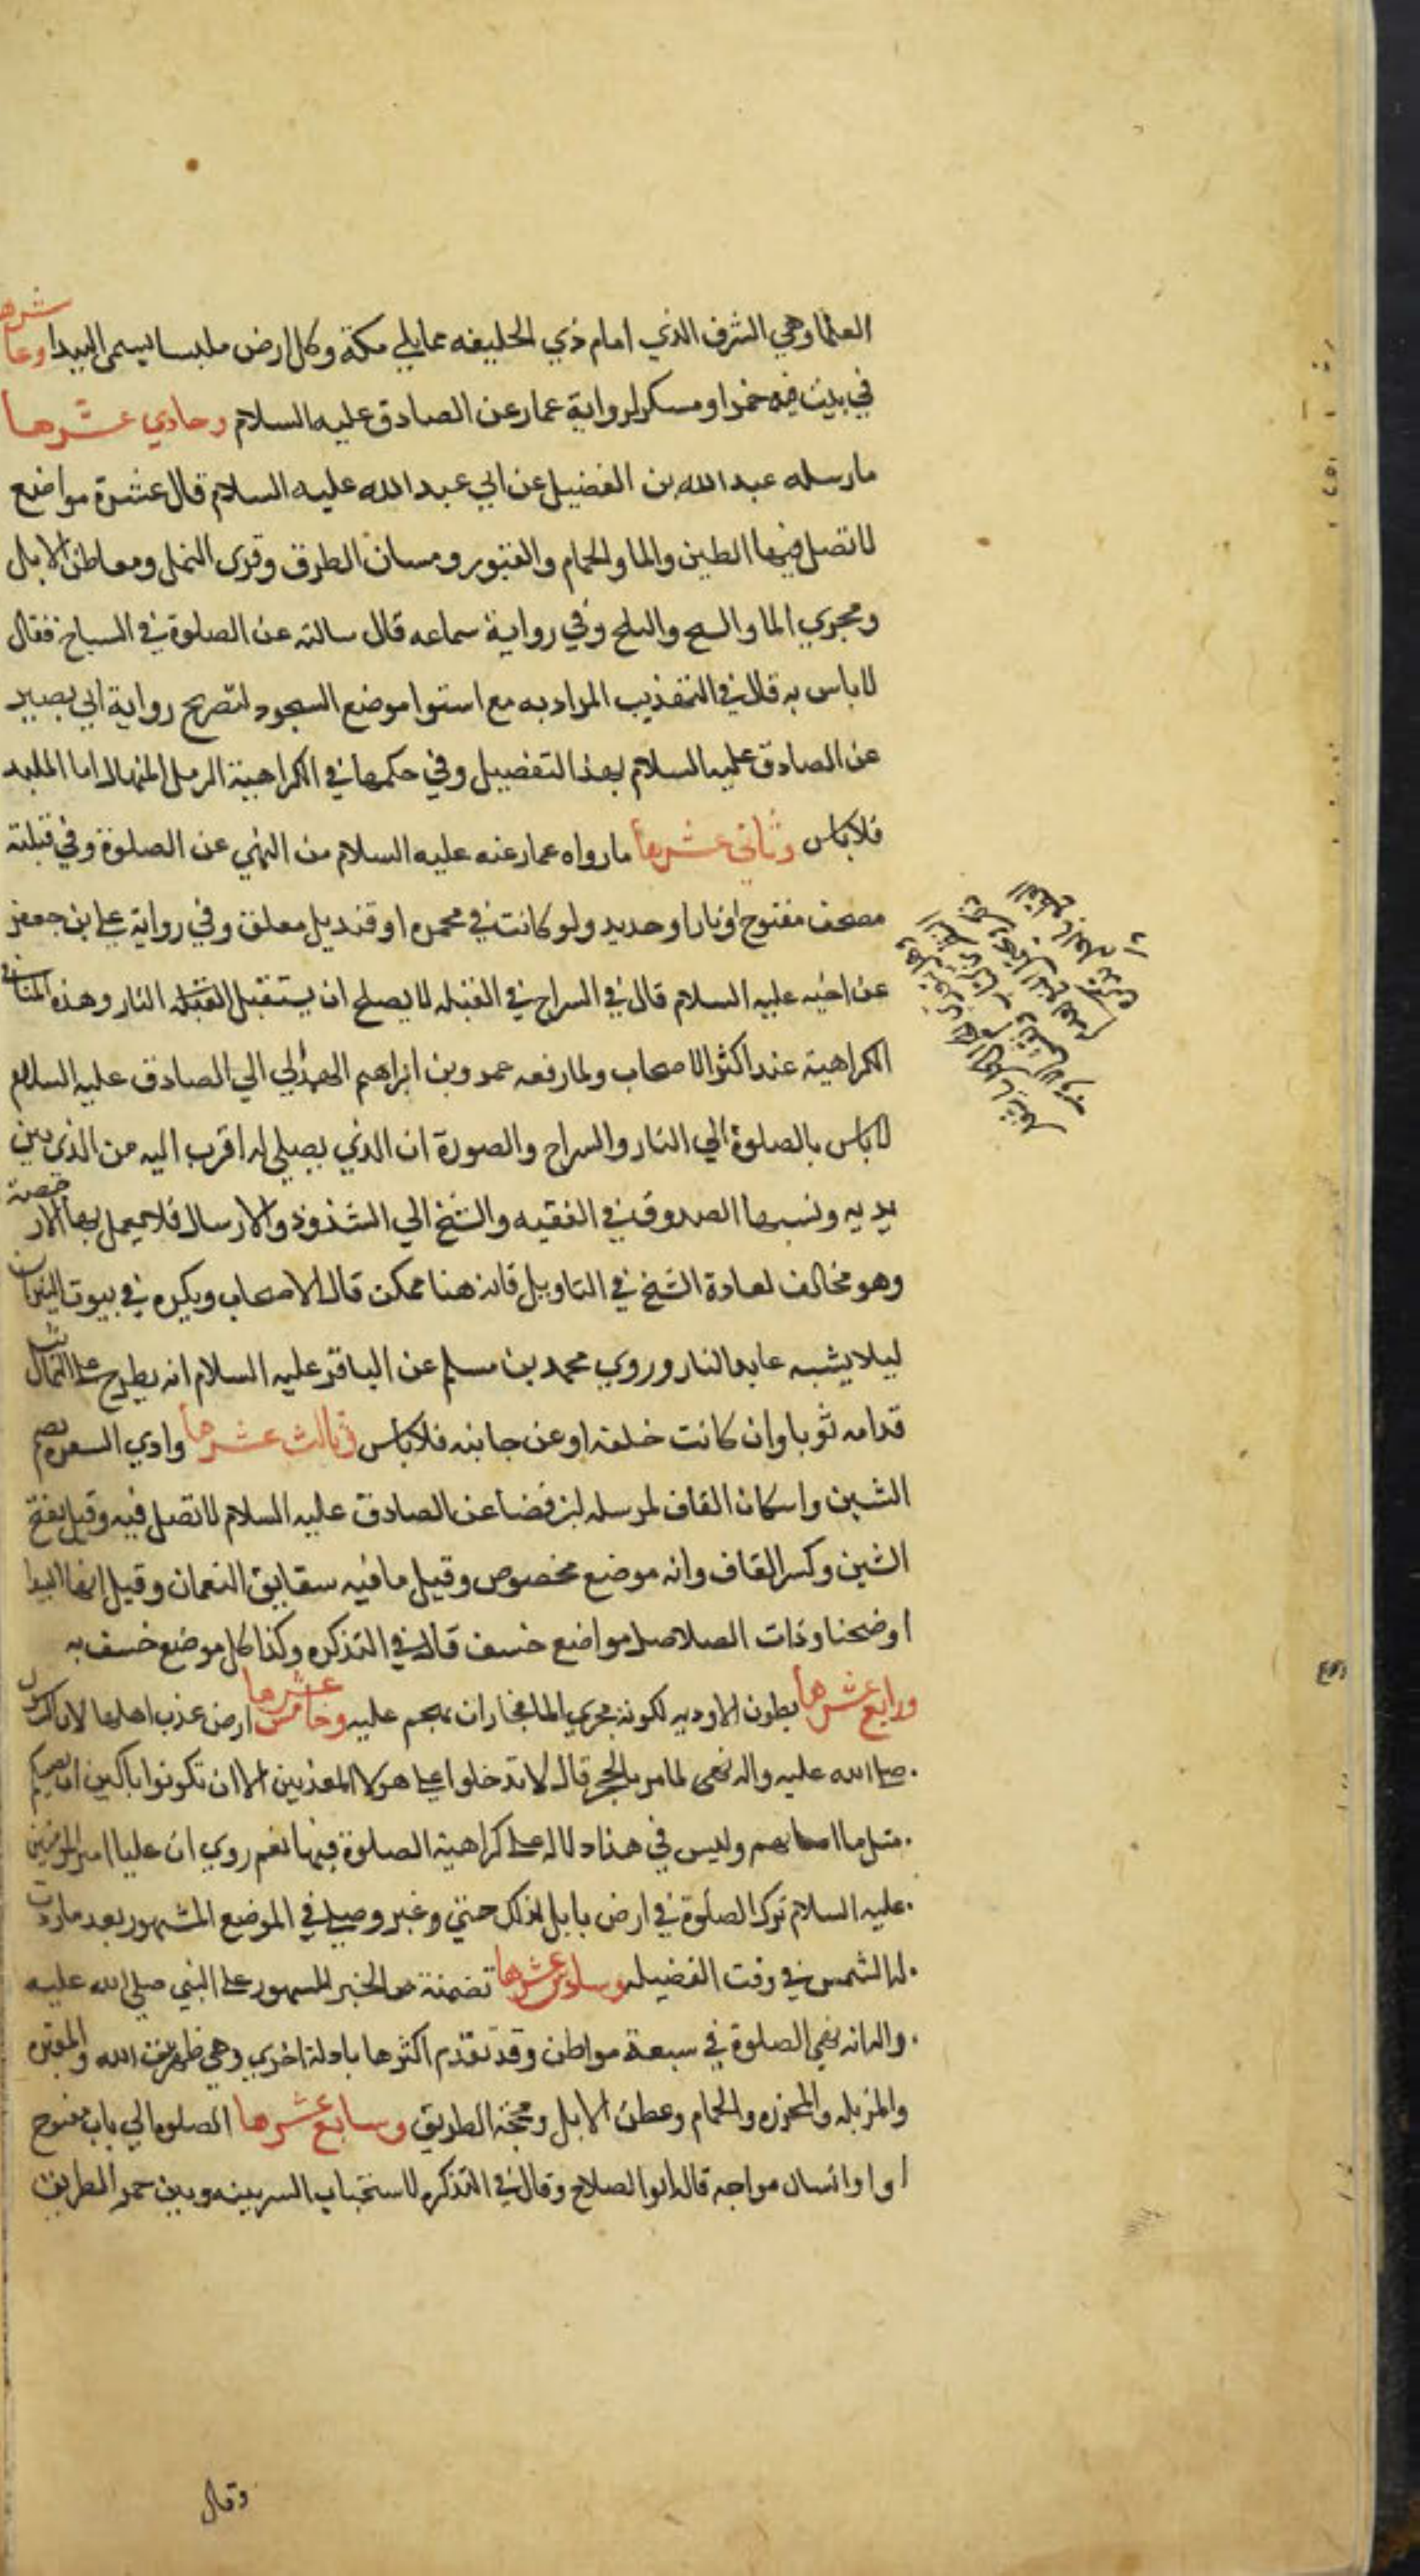 العلما وهي الشرف الذي امام ذي الحليفه مما يلي مكة وكل ارض ملبسا يسمى البيدا وعاشرها
في بيت فيه خمر او مسكر لرواية عمار عن الصادق عليه السلام وحادي عشرها
ما رسله عبد الله بن الفضيل عن ابي عبد الله عليه السلام قال عشرة مواضع
لا تصل فيها الطين والما والحمام والقبور ومسان الطرق وقرى النمل ومعاطن الابل
ومجرى الما والسبح والثلج وفي رواية سماعه قال سالته عن الصلوة في السباخ فقال
لا باس به قال في التهذيب المراد به مع استوا موضع السجود لتصريح رواية ابي بصير
عن الصادق عليه السلام بهذا التفصيل وفي حكمها في الكراهية الرمل المنهال اما الملبد
فلا باس وثاني عشرها ما رواه عمار عنه عليه السلام من النهي عن الصلوة وفي قبلته
مصحف مفتوح او نار او حديد ولو كانت في مجمره او قنديل معلق وفي رواية علي بن جعفر
عن اخيه عليه السلام قال في السراج في القبله لا يصلح ان يستقبل القبله النار وهذه
الكراهية عند اكثر الاصحاب ولما رفعه عمرو بن ابراهيم الهمداني الي الصادق عليه السلام
لا باس بالصلوة الي النار والسراج والصورة ان الذي يصلي له اقرب اليه من الذي بين
يديه ونسبها الصدوق في الفقيه والشيخ الي الشذوذ والارسال فلا يعمل بها الا رخصة
وهو مخالف لعادة الشيخ في التاويل فانه هنا ممكن قال الاصحاب ويكره في بيوت النيران
ليلا يشبه عابد النار وروي محمد بن مسلم عن الباقر عليه السلام انه يطرح على التماثيل
قدامه ثوبا وان كانت خلفه او عن جانبه فلا باس وثالث عشرها وادي الشقره بضم
الشين واسكان القاف لمرسله ابن فضا عن الصادق عليه السلام لا تصل فيه وقيل بفتح
الشين وكسر القاف وانه موضع مخصوص وقيل ما فيه سقايق النعمان وقيل انها البيدا
او ضجنا وذات الصلاصل مواضع خسف قال في التذكره وكذا كل موضع خسف به
ورابع عشرها بطون الاوديه لكونه مجري الما فجاز ان يهجم عليه وخامس عشرها ارض عذب اهلها لان
صلى الله عليه واله نهى لما مر بالحجر قال لا تدخلوا على هولا المعذبين الا ان تكونوا باكين ان يصيبكم
مثل ما اصابهم وليس في هذا دلاله على كراهية الصلوة فيها نعم روي ان عليا امير المؤمنين
عليه السلام ترك الصلوة في ارض بابل لذلك حتي وعبر وصلي في الموضع المشهور بعد ما ردت
له الشمس في وقت الفضيله وسادس عشرها تضمنته من الخبر المشهور على النبي صلى الله عليه
واله انه نهى الصلوة في سبعة مواطن وقد تقدم اكثرها بادلة اخري وهي ظهر بيت الله والمقبره
والمزبله والمجزره والحمام وعطن الابل ومحجة الطريق وسابع عشرها الصلوه الي باب مفتوح
او او انسان مواجه قاله ابو الصلاح وقال في التذكره لاستحباب الستر بينه وبين ممر الطريق
وقال